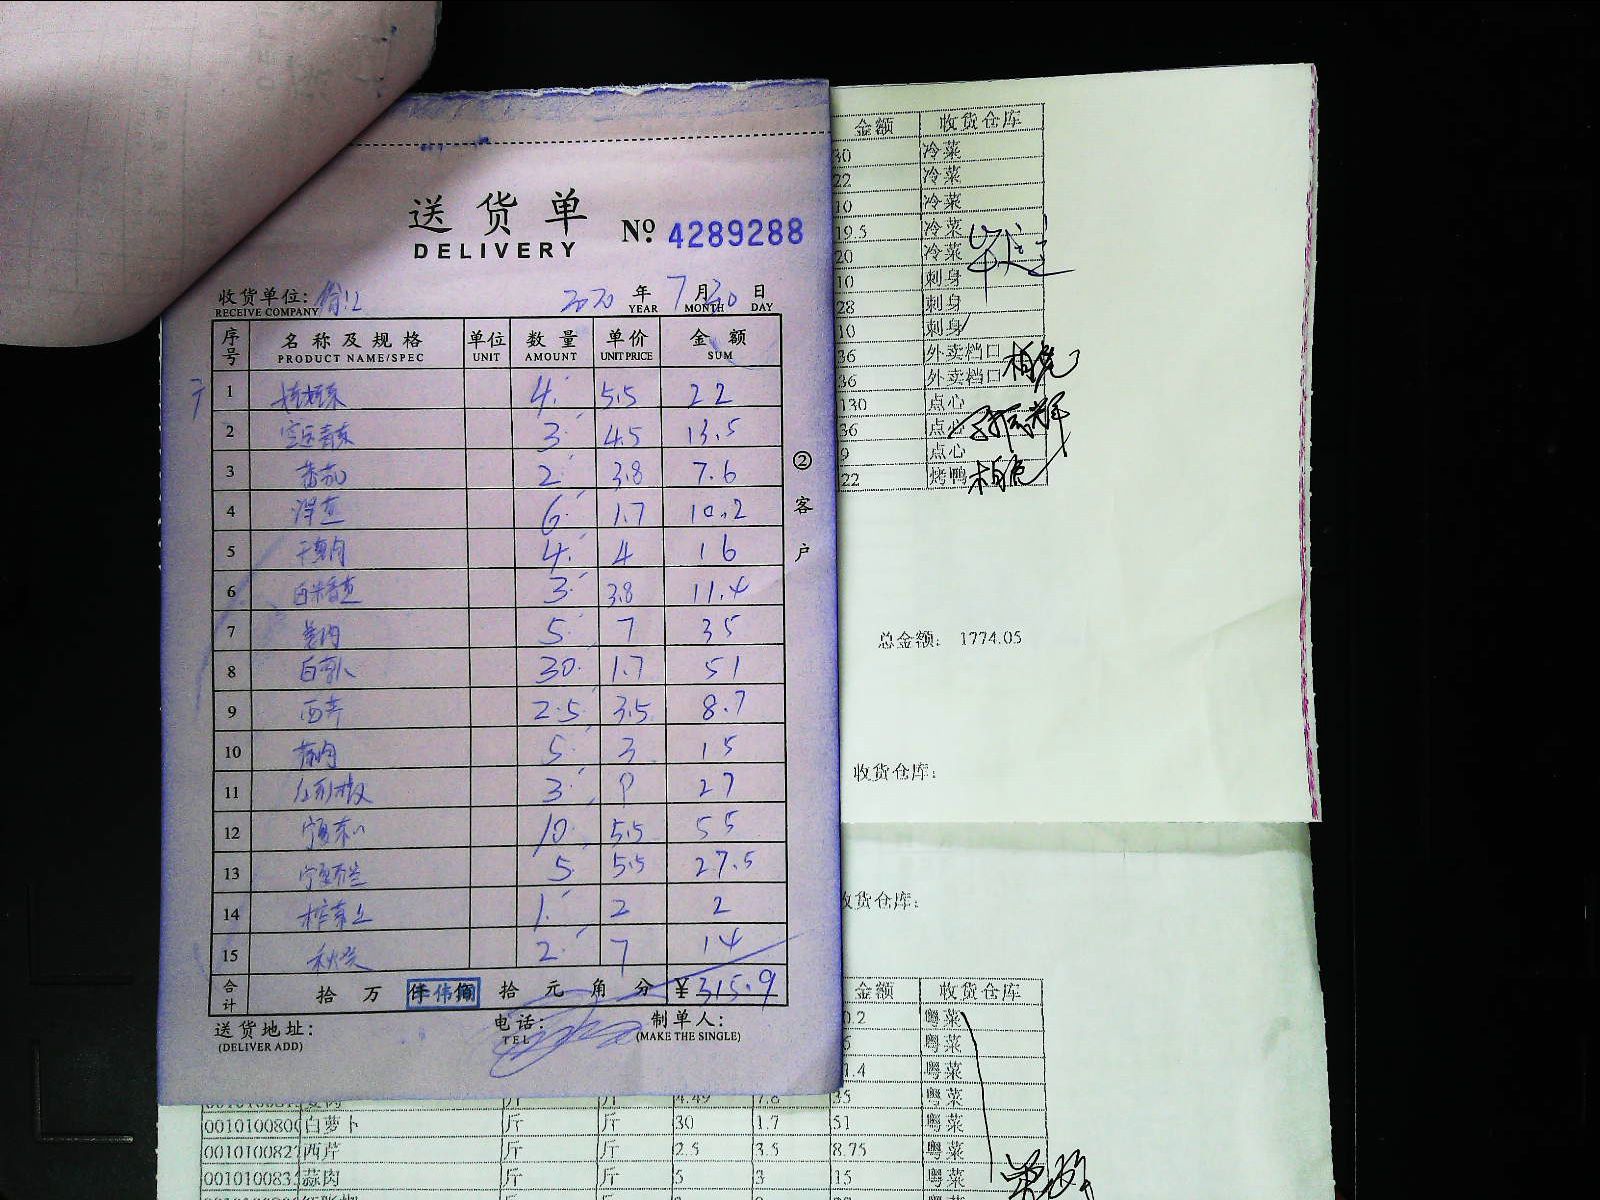 送货单
DELIVERY
Nº 4289288
收货单位:
RECEIVE COMPANY
2020 年 7 月 30 日
YEAR MONTH DAY
序号 名称及规格 单位 数量 单价 金额
PRODUCT NAME/SPEC UNIT AMOUNT UNIT PRICE SUM
1 4 5.5 22
2 3 4.5 13.5
3 番茄 2 3.8 7.6
4 洋葱 6 1.7 10.2
5 4 4 16
6 3 3.8 11.4
7 姜肉 5 7 35
8 白萝卜 30 1.7 51
9 西芹 2.5 3.5 8.7
10 蒜肉 5 3 15
11 3 9 27
12 宁夏菜心 10 5.5 55
13 宁夏芥兰 5 5.5 27.5
14 1 2 2
15 秋葵 2 7 14
合计 拾 万 仟 佰 拾 元 角 分 ¥315.9
李伟
送货地址:
(DELIVER ADD)
电话:
TEL
制单人:
(MAKE THE SINGLE)
② 客户
金额 收货仓库
30 冷菜
22 冷菜
10 冷菜
19.5 冷菜
20 冷菜
10 刺身
28 刺身
10 刺身
36 外卖档口
36 外卖档口
130 点心
36 点心
9 点心
22 烤鸭
总金额: 1774.05
收货仓库:
收货仓库:
金额 收货仓库
0.2 粤菜
6 粤菜
1.4 粤菜
斤 斤 4.49 7.8 35 粤菜
001010080 白萝卜 斤 斤 30 1.7 51 粤菜
001010082 西芹 斤 斤 2.5 3.5 8.75 粤菜
001010083 蒜肉 斤 斤 5 3 15 粤菜